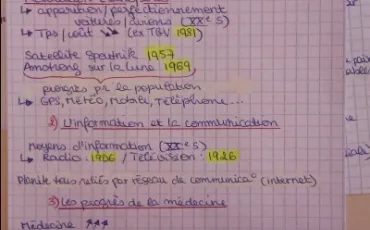 ↳ apparition/perfectionnement
voitures/avions (XXe s)
↳ Tps/coût ↘ (ex TGV 1981)
Satellite Spoutnik 1957
Amstrong sur la Lune 1969
progrès pr la population
↳ GPS, Météo, Mobile, Téléphone...
2) L'information et la communication
Moyens d'information (XXe s)
↳ Radio : 1906 / Télévision : 1926
Planète tous reliés par réseau de communica° (internet)
3) Les progrès de la médecine
Médecine ***